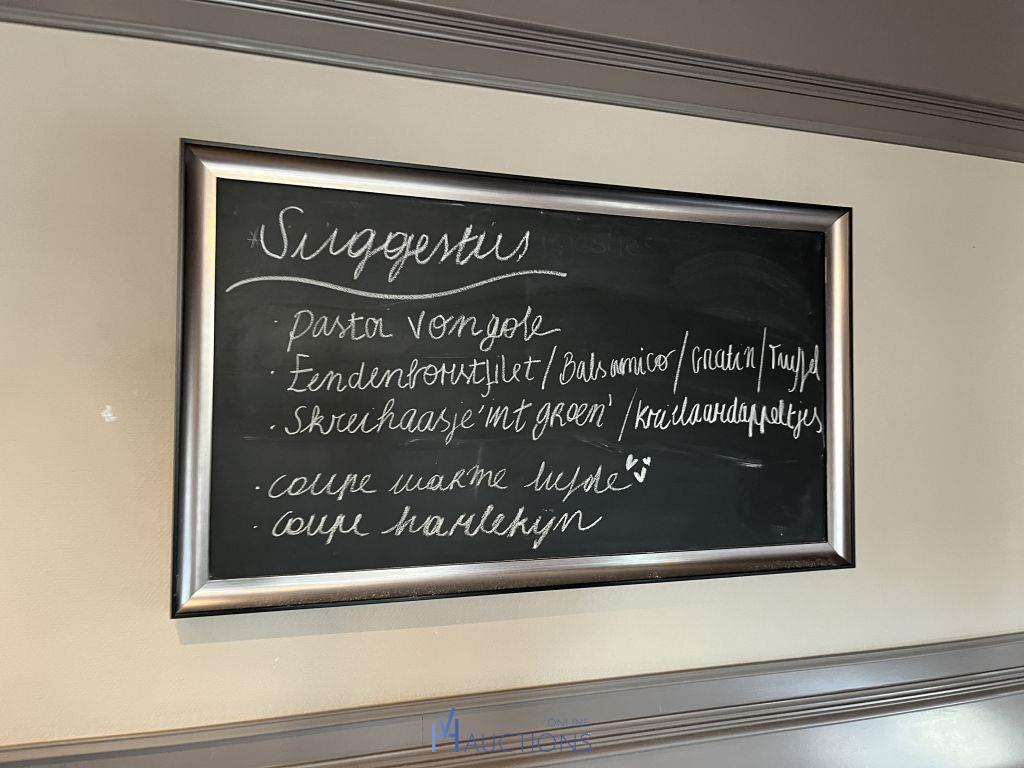 *Suggesties
· pasta vongole
· Eendenborstfilet / Balsamico / Gratin / Truffel
· Skreihaasje 'int groen' / Krielaardappeltjes
· coupe warme liefde
· coupe harlekijn
ONLINE
AUCTIONS